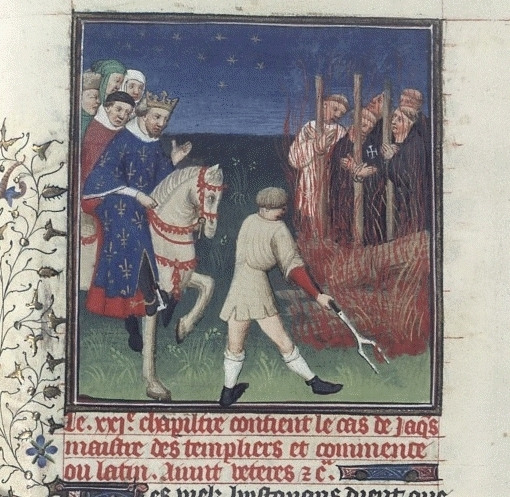 le. xxi.e chapiltre contient le cas de Jaqs
maistre des templiers et commence
ou latin. Auunt veteres ⁊ cͤ.
es mesl. hystoriens dient que